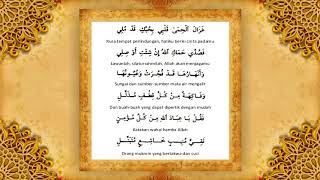 غَزَالَ الْحِمَى قَلْبِي بِحُبِّكَ قَدْ مُلِي
Rusa tempat perlindungan, hatiku berisi cinta padamu
فَصُدَّنِي حَمَاكَ اللهُ إِنْ شِئْتَ أَوْ صِلِي
Lawanlah, silaturrahmilah, Allah akan menjagamu
وَأَنْهَارُهَا قَدْ فُجِّرَتْ وَعُيُونُهَا
Sungai dan sumber-sumber mata air mengalir
وَفَاكِهَةٌ مِنْ كُلِّ قِطْفٍ مُذَلَّلِ
Dan buah-buah yang dapat dipetik dengan mudah
فَقُلْ يَا عِبَادَ اللهِ مِنْ كُلِّ مُؤْمِنٍ
Katakan wahai hamba Allah
تَقِيٍّ مُنِيْبٍ خَاشِعٍ مُتَبَتِّلِ
Orang mukmin yang bertakwa dan suci